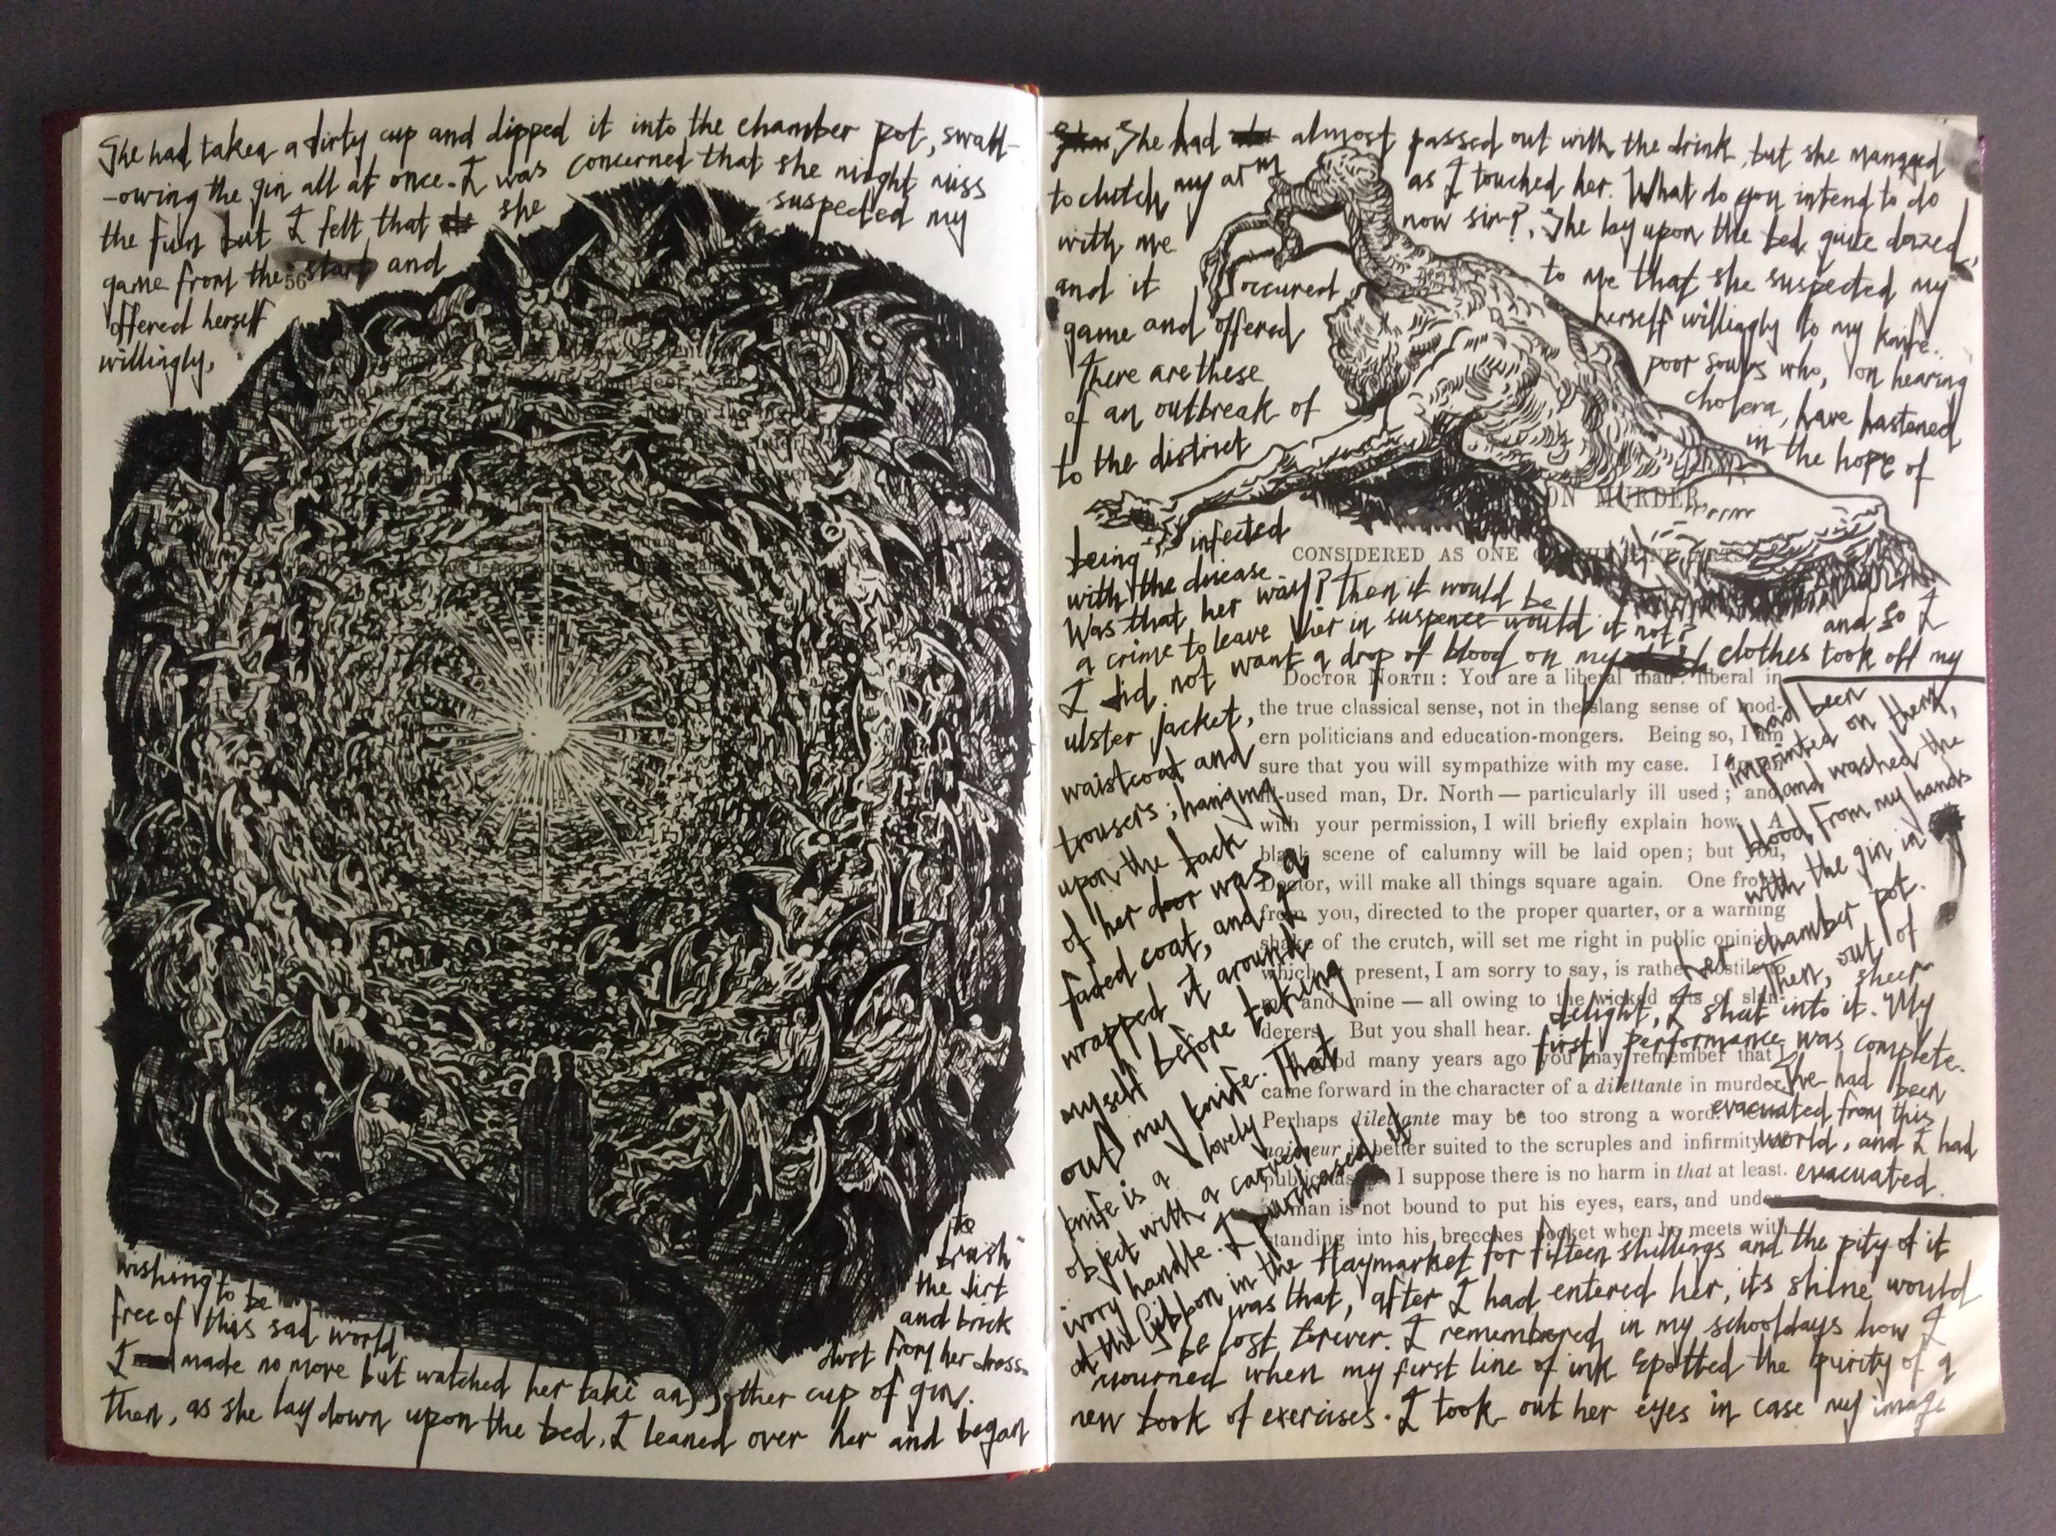 She had taken a dirty cup and dipped it into the chamber pot, swall-
-owing the gin all at once. I was concerned that she might miss
the fun but I felt that she suspected my
game from the start and
56
offered herself
willingly,
wishing to be
free of this sad world
I made no more but watched her take an,other cup of gin.
Then, as she lay down upon the bed, I leaned over her and began
to
brush
the dirt
and brick
dust from her dress
She had almost passed out with the drink, but she managed
to clutch my arm as I touched her. What do you intend to do
with me now sir?, She lay upon the bed quite dazed,
and it occured to me that she suspected my
game and offered herself willingly to my knife.
There are these poor souls who, on hearing
of an outbreak of cholera, have hastened
to the district in the hope of
ON MURDER,
being infected
CONSIDERED AS ONE
with the disease.
Was that her way? Then it would be
a crime to leave her in suspence would it not?
I did not want a drop of blood on my clothes and so I
took off my
ulster jacket,
waistcoat and
trousers; hanging
upon the back
of her door was a
faded coat, and I
wrapped it around
myself before taking
out my knife. That
knife is a lovely
object with a carved
ivory handle. I purchased it
at the Gibbon in the Haymarket for fifteen shillings and the pity of it
was that, after I had entered her, its shine would
be lost forever. I remembered in my schooldays how I
mourned when my first line of ink spotted the purity of a
new book of exercises. I took out her eyes in case my image
had been
imprinted on them,
and washed the
blood from my hands
with the gin in
her chamber pot.
Then, out of sheer
delight, I shat into it. My
first performance was complete.
She had been
evacuated from this
world, and I had
evacuated.
DOCTOR NORTH: You are a liberal man: liberal in
the true classical sense, not in the slang sense of mod-
ern politicians and education-mongers. Being so, I am
sure that you will sympathize with my case. I am an
ill-used man, Dr. North — particularly ill used; and,
with your permission, I will briefly explain how. A
black scene of calumny will be laid open; but you,
Doctor, will make all things square again. One frown
from you, directed to the proper quarter, or a warning
shake of the crutch, will set me right in public opinion
which at present, I am sorry to say, is rather hostile to
me and mine — all owing to the wicked arts of slan-
derers. But you shall hear.
A good many years ago you may remember that I
came forward in the character of a dilettante in murder.
Perhaps dilettante may be too strong a word.
better suited to the scruples and infirmity
I suppose there is no harm in that at least.
man is not bound to put his eyes, ears, and under-
standing into his breeches pocket when he meets with